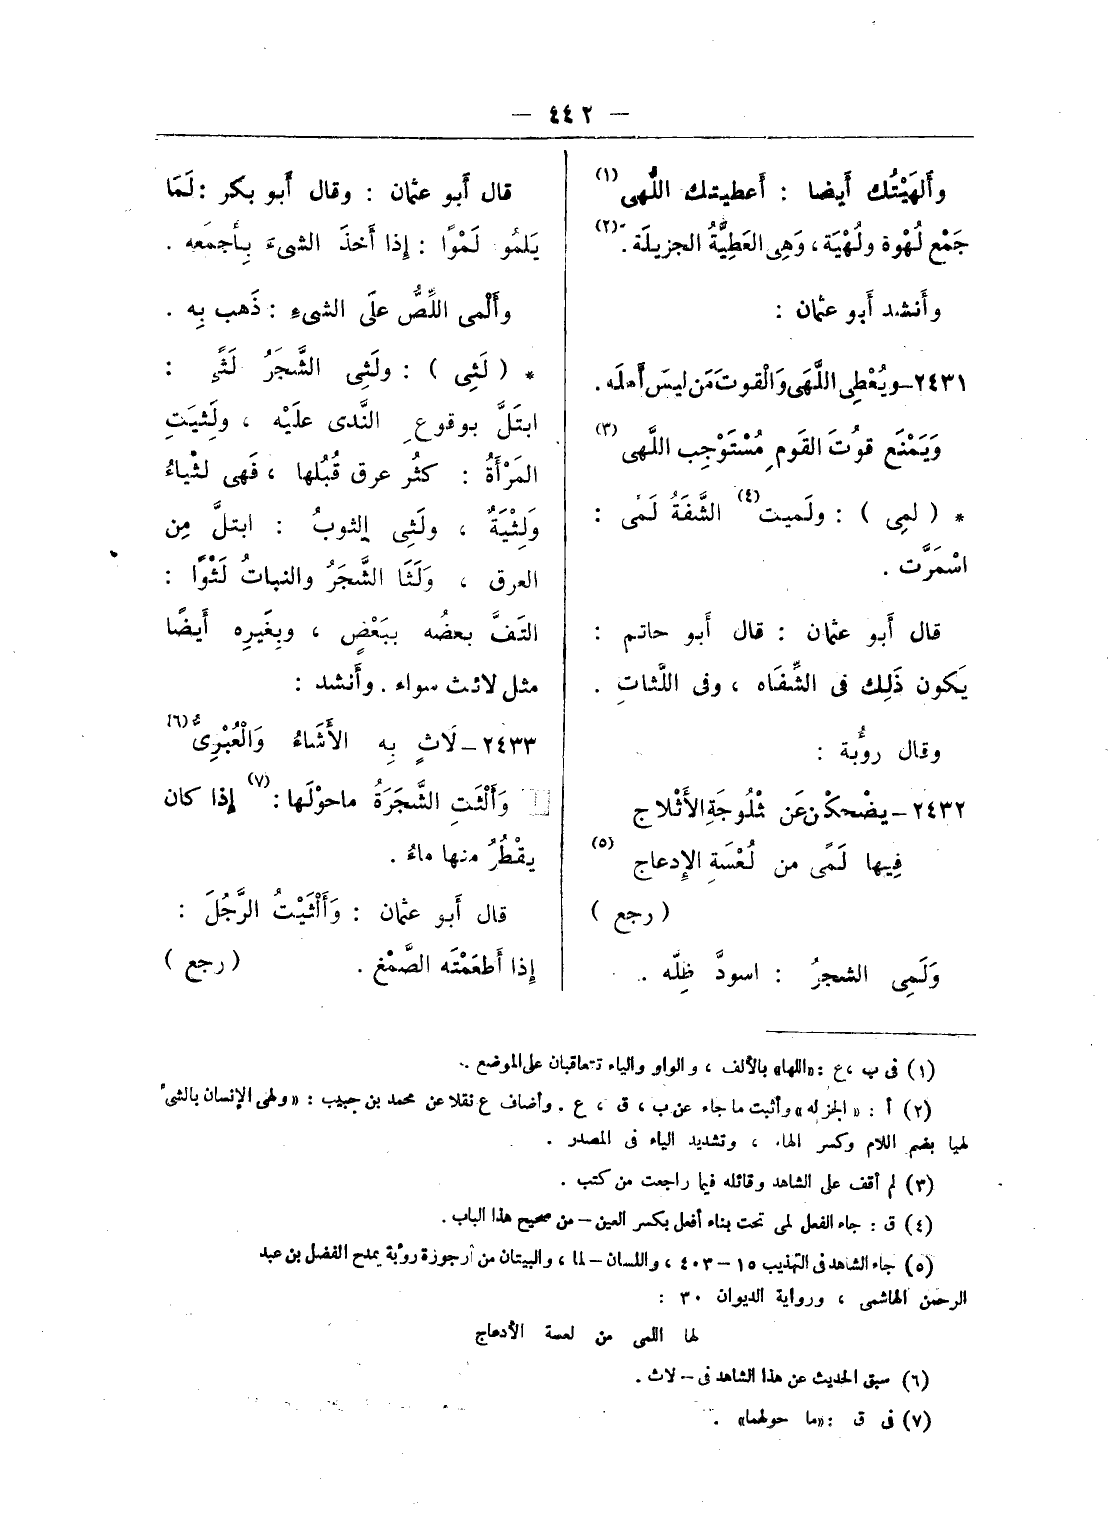 — ٤٤٢ —
وأَلهَيْتُك أيضا : أعطيتك اللُّهى (١)
جَمْع لُهْوة ولُهْيَة ، وَهِى العَطِيَّةُ الجزيلَة . (٢)
وأَنشد أَبو عثمان :
٢٤٣١ – ويُعْطِى اللُّهَى وَالْقوتَ مَن ليسَ أَهلَه .
وَيَمْنَع قوُتَ القَومِ مُسْتَوْجِب اللُّهى (٣)
* ( لمِى ) : ولَميت (٤) الشَّفَةُ لَمًى :
اسْمَرَّت .
قال أَبو عثمان : قال أَبو حاتم :
يَكون ذَلِك فى الشِّفَاه ، وفى اللِّثاتِ .
وقال رؤُبة :
٢٤٣٢ – يضْحكْن عَن مَثْلُوجَةِ الأَثْلاجِ
فِيها لَمًى من لُعْسَةِ الإِدعاج (٥)
( رجع )
وَلَمِى الشجرُ : اسودَّ ظِلّه .
قال أَبو عثمان : وقال أَبو بكر : لَمَا
يَلمُو لَمْوًا : إذا أَخذَ الشىءَ بِأَجمَعه .
وأَلْمى اللِّصُّ علَى الشىءِ : ذَهب بِه .
* ( لَثِى ) : ولَثِى الشَّجَرُ لَثًى :
ابتَلَّ بوقوعِ النَّدى علَيْه ، ولَثِيَتِ
المَرْأَةُ : كثُر عرق قُبُلها ، فَهى لثْياءُ
وَلَثِيَةٌ ، ولَثِى الثوبُ : ابتلَّ مِن
العرق ، وَلَثَا الشَّجَرُ والنباتُ لَثْوًا :
التَفَّ بعضُه ببَعْضٍ ، وبِغَيرِه أَيضًا
مثل لائث سواء . وأَنشد :
٢٤٣٣ – لَاثٍ بِه الأَشَاءُ وَالْعُبْرِىُّ (٦)
وَأَلْثَتِ الشَّجَرَةُ ماحوْلَها : (٧) إذا كان
يقْطُرُ منها ماءُ .
قال أَبو عثمان : وَأَلْثَيْتُ الرَّجُلَ :
إذا أَطعَمْتَه الصَّمْغ . ( رجع )
(١) فى ب ، ع : «اللها» بالألف ، والواو والياء تتعاقبان على الموضع .
(٢) أ : «الجزله» وأثبت ما جاء عن ب ، ق ، ع . وأضاف ع نقلا عن محمد بن حبيب : «ولهى الإنسان بالشىء
لهيا بضم اللام وكسر الهاء ، وتشديد الياء فى المصدر .
(٣) لم أقف على الشاهد وقائله فيما راجعت من كتب .
(٤) ق : جاء الفعل لمى تحت بناء أفعل بكسر العين – من صحيح هذا الباب .
(٥) جاء الشاهد فى التهذيب ١٥ – ٤٠٣ ، واللسان – لما ، والبيتان من أرجوزة رؤبة يمدح الفضل بن عبد
الرحمن الهاشمى ، ورواية الديوان ٣٠ :
لها اللمى من لعسة الأدعاج
(٦) سبق الحديث عن هذا الشاهد فى – لاث .
(٧) فى ق : «ما حولهما» .